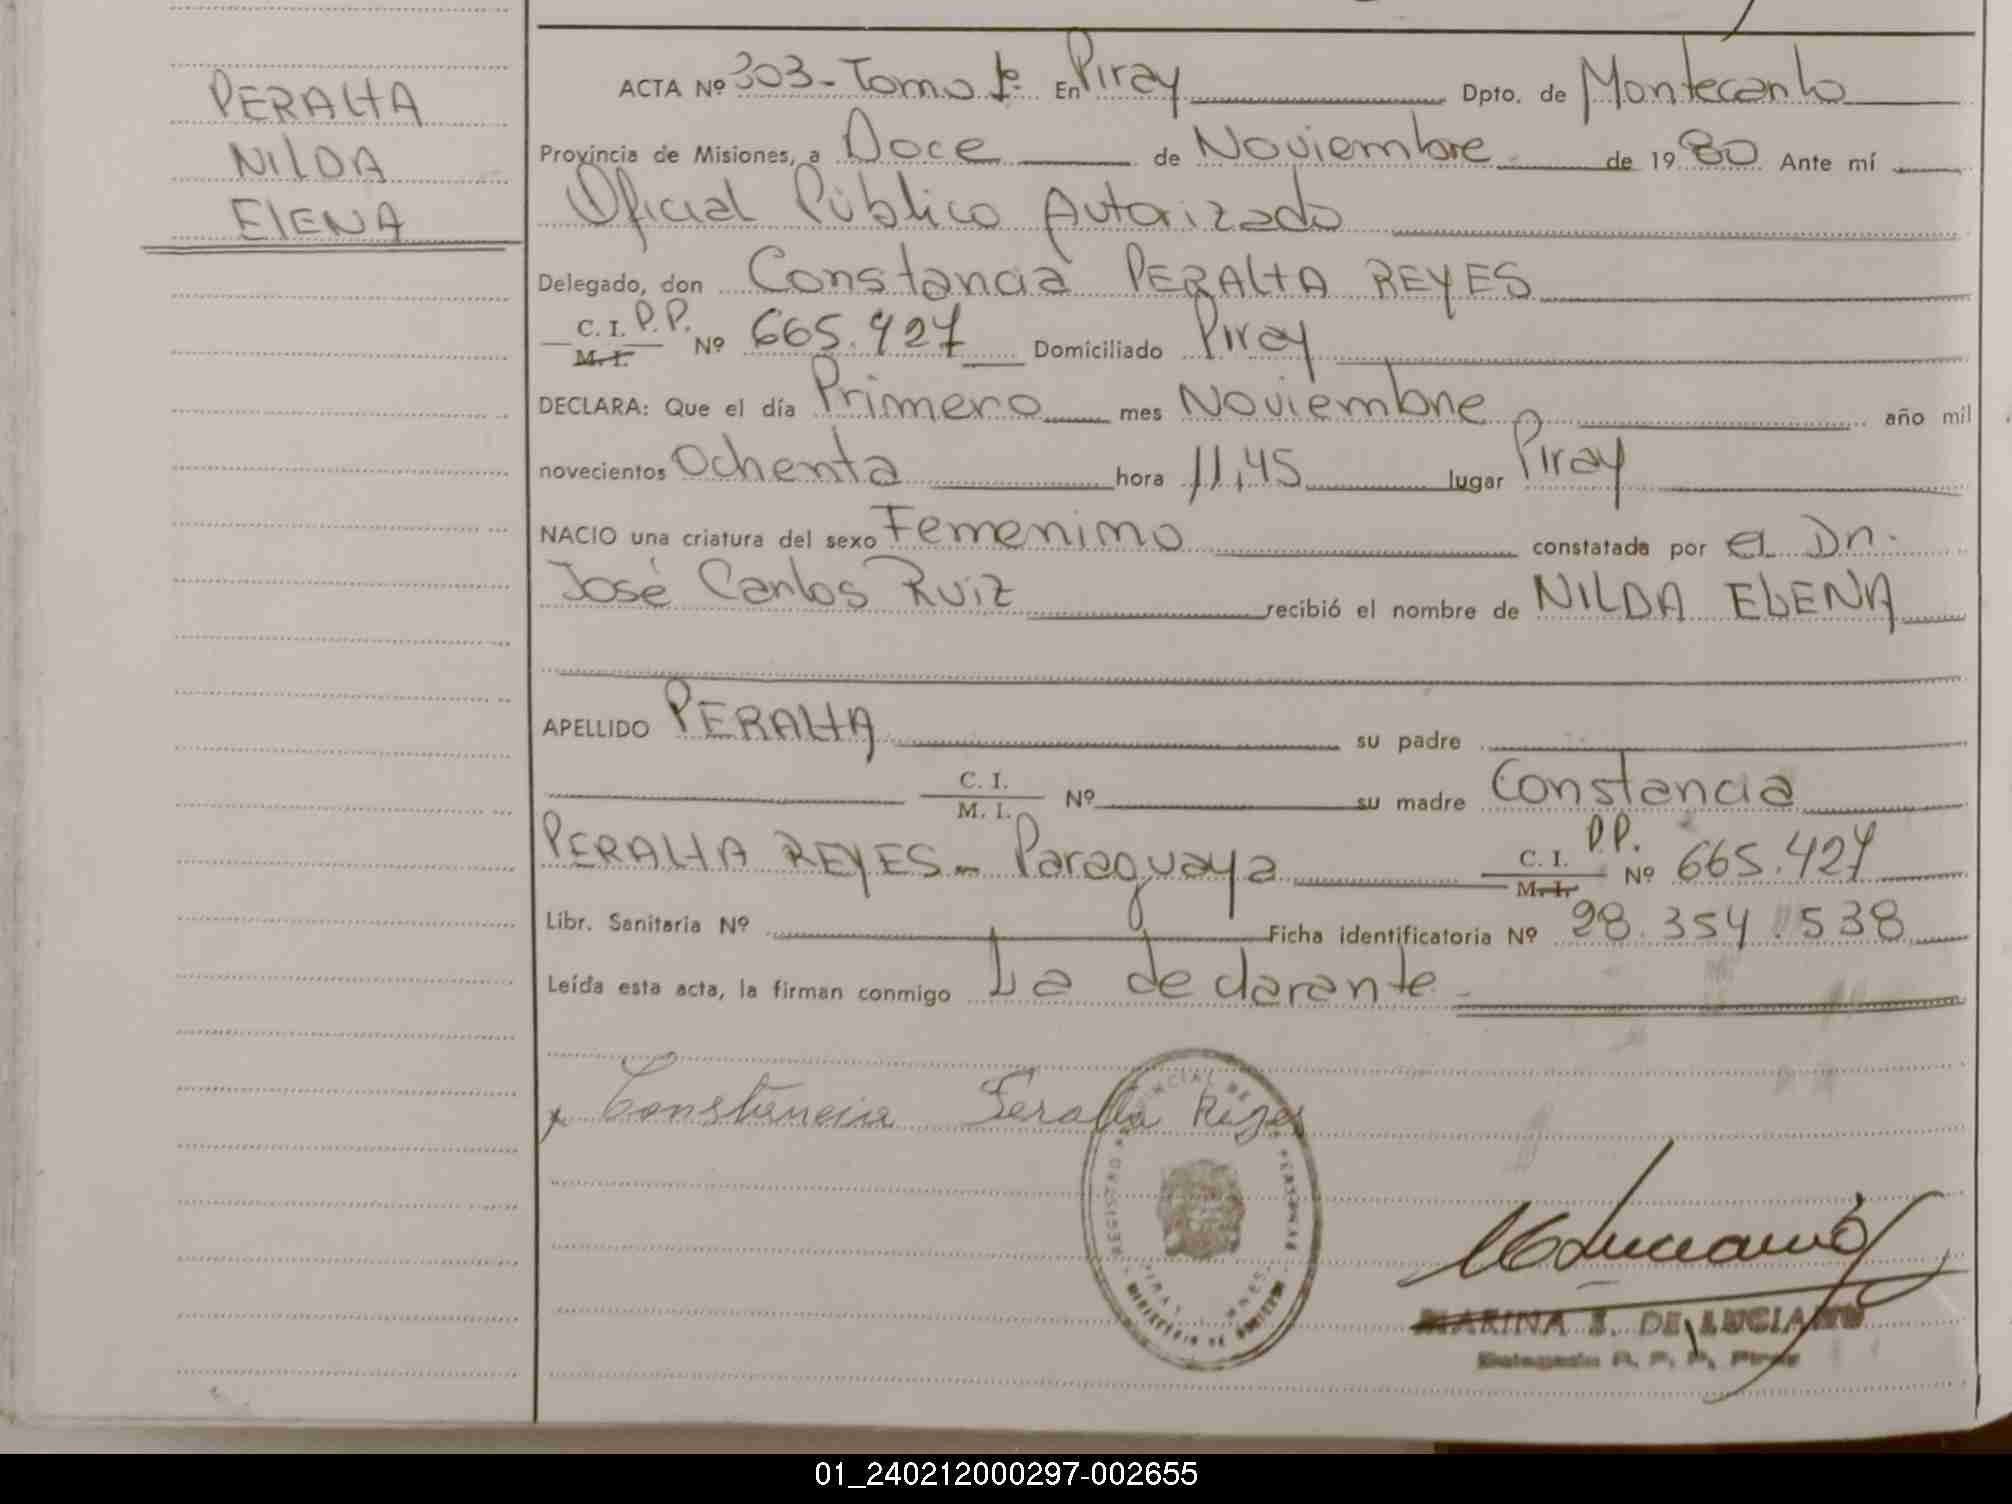 PERALTA
NILDA
ELENA
ACTA Nº 303 - Tomo 1º En Piray Dpto. de Montecarlo
Provincia de Misiones, a Doce de Noviembre de 1980 Ante mí
Oficial Público Autorizado
Delegado, don Constancia PERALTA REYES
C. I. P.P.
M. I. Nº 665.427 Domiciliado Piray
DECLARA: Que el día Primero mes Noviembre año mil
novecientos Ochenta hora 11,45 lugar Piray
NACIO una criatura del sexo Femenino constatada por el Dr.
José Carlos Ruiz recibió el nombre de NILDA ELENA
APELLIDO PERALTA su padre
C. I.
M. I. Nº su madre Constancia
PERALTA REYES - Paraguaya C. I. P.P.
M. I. Nº 665.427
Libr. Sanitaria Nº Ficha identificatoria Nº 28.354.538
Leída esta acta, la firman conmigo La declarante
x Constancia Peralta Reyes
REGISTRO PROVINCIAL DE LAS PERSONAS
PIRAY MNES.
MARINA E. DE LUCIANO
Delegada R. P. P. Piray
01_240212000297-002655